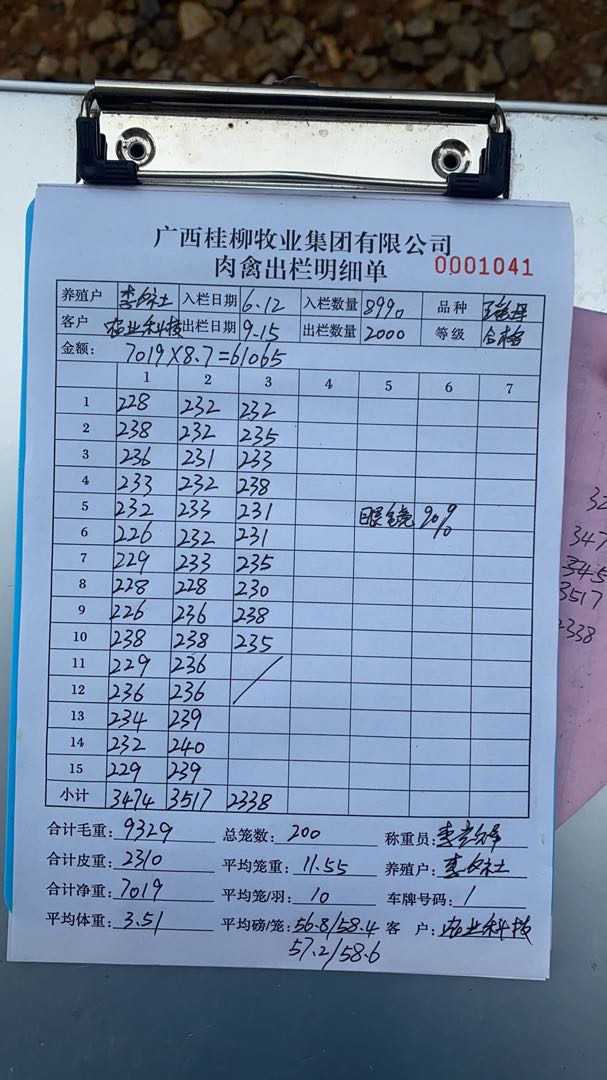 广西桂柳牧业集团有限公司
肉禽出栏明细单 0001041
养殖户 入栏日期 6.12 入栏数量 8990 品种 瑶鸡
客户 农业科技 出栏日期 9.15 出栏数量 2000 等级 合格
金额: 7019×8.7=61065
1 2 3 4 5 6 7
1 228 232 232
2 238 232 235
3 236 231 233
4 233 232 238
5 232 233 231 眼镜 90%
6 226 232 231
7 229 233 235
8 228 228 230
9 226 236 238
10 238 238 235
11 229 236
12 236 236
13 234 239
14 232 240
15 229 239
小计 3474 3517 2338
合计毛重: 9329 总笼数: 200 称重员:
合计皮重: 2310 平均笼重: 11.55 养殖户:
合计净重: 7019 平均笼/羽: 10 车牌号码: /
平均体重: 3.51 平均磅/笼: 56.8/58.4 客户: 农业科技
57.2/58.6
32
347
345
3517
2338